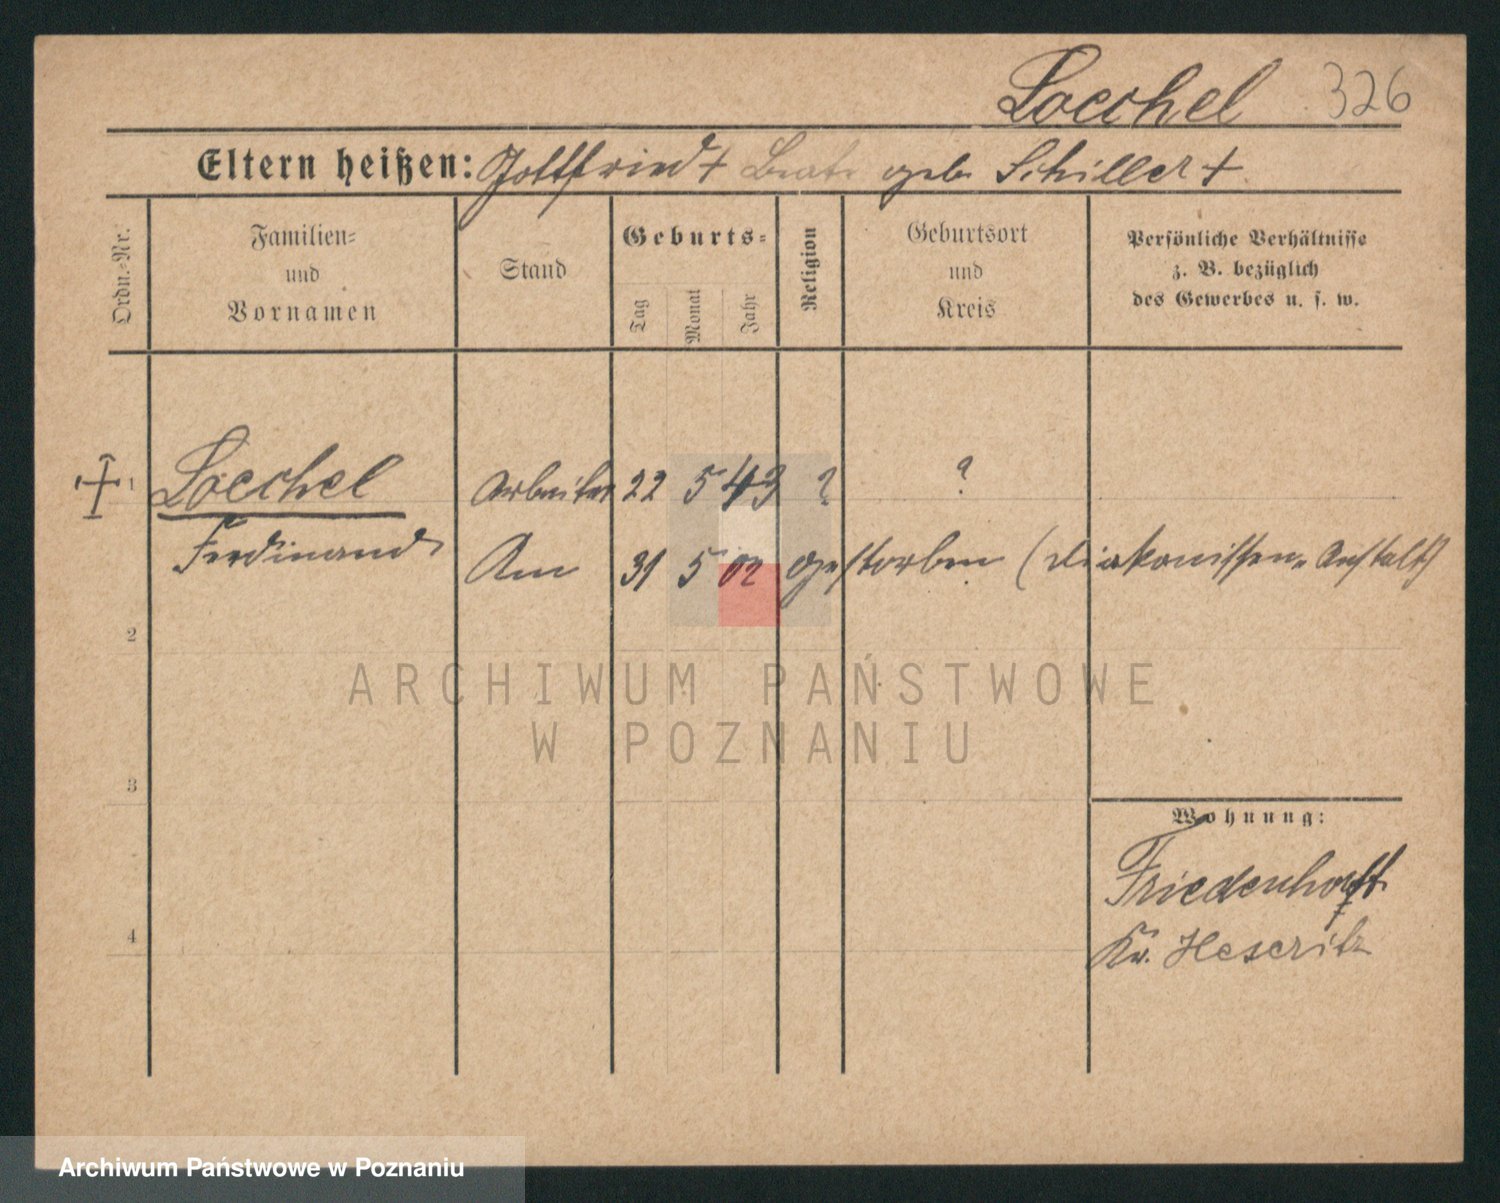 Loechel 326
Eltern heißen: Gottfried + Beate geb. Schiller +
Ordn.-Nr.
Familien-
und
Vornamen
Stand
Geburts-
Tag
Monat
Jahr
Religion
Geburtsort
und
Kreis
Persönliche Verhältnisse
z. B. bezüglich
des Gewerbes u. s. w.
1 Loechel Arbeiter 22 5 43 ? ?
Ferdinand Am 31 5 02 gestorben (Diakonissen-Anstalt)
2
ARCHIWUM PAŃSTWOWE
W POZNANIU
3
Wohnung:
4
Kr. Meseritz
Archiwum Państwowe w Poznaniu